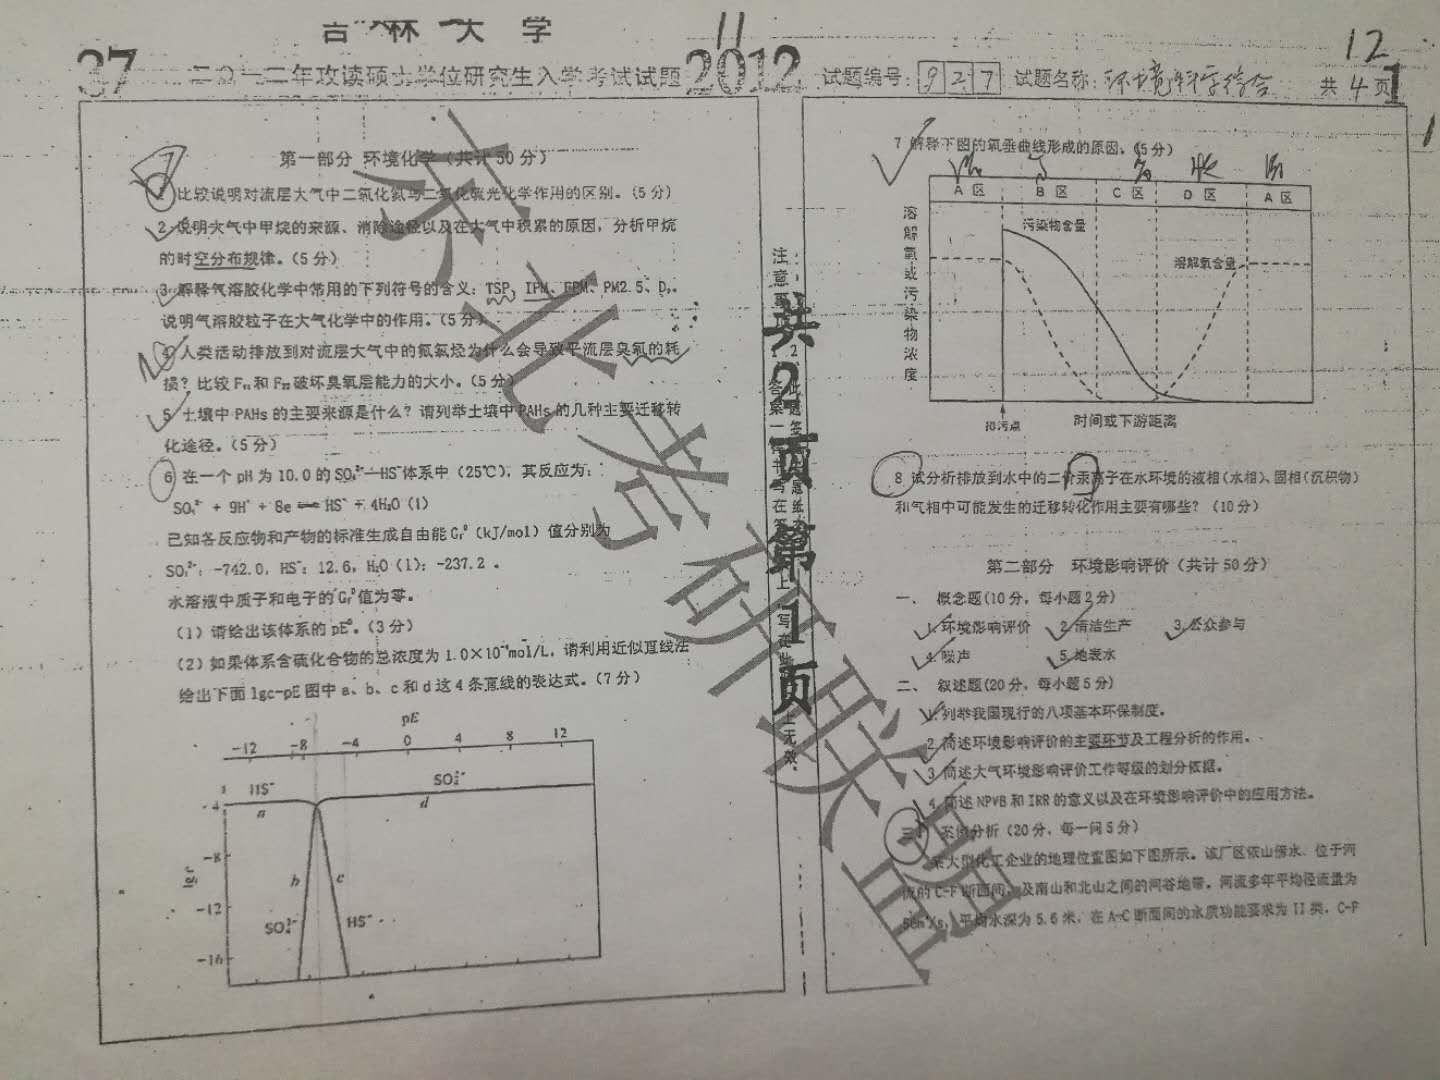 吉林大学
37
二〇一二年攻读硕士学位研究生入学考试试题
2012
11
试题编号：927 试题名称：环境科学综合
12
共4页
1
第一部分 环境化学（共计50分）
1 比较说明对流层大气中二氧化氮与二氧化硫光化学作用的区别。（5分）
2 说明大气中甲烷的来源、消除途径以及在大气中积累的原因，分析甲烷
的时空分布规律。（5分）
3 解释气溶胶化学中常用的下列符号的含义：TSP、IPM、FPM、PM2.5、Dp。
说明气溶胶粒子在大气化学中的作用。（5分）
4 人类活动排放到对流层大气中的氟氯烃为什么会导致平流层臭氧的耗
损？比较F₁₁和F₂₂破坏臭氧层能力的大小。（5分）
5 土壤中PAHs的主要来源是什么？请列举土壤中PAHs的几种主要迁移转
化途径。（5分）
6 在一个pH为10.0的SO₄²⁻—HS⁻体系中（25℃），其反应为：
SO₄²⁻ + 9H⁺ + 8e ⇌ HS⁻ + 4H₂O（l）
已知各反应物和产物的标准生成自由能Gf⁰（kJ/mol）值分别为
SO₄²⁻：-742.0，HS⁻：12.6，H₂O（l）：-237.2。
水溶液中质子和电子的Gf⁰值为零。
（1）请给出该体系的pE⁰。（3分）
（2）如果体系含硫化合物的总浓度为1.0×10⁻⁴mol/L，请利用近似直线法
给出下面lgc-pE图中a、b、c和d这4条直线的表达式。（7分）
pE
-12 -8 -4 0 4 8 12
HS⁻ SO₄²⁻
-4
a d
-8
lgc
b c
-12
SO₄²⁻ HS⁻
-16
注意事项
1
2
共2页第1页
7 解释下图的氧垂曲线形成的原因。（5分）
A区 B区 C区 D区 A区
污染物含量
溶解氧含量
溶解氧或污染物浓度
排污点 时间或下游距离
8 试分析排放到水中的二价汞离子在水环境的液相（水相）、固相（沉积物）
和气相中可能发生的迁移转化作用主要有哪些？（10分）
第二部分 环境影响评价（共计50分）
一、 概念题(10分，每小题2分)
1.环境影响评价 2.清洁生产 3.公众参与
4.噪声 5.地表水
二、 叙述题(20分，每小题5分)
1.列举我国现行的八项基本环保制度。
2.简述环境影响评价的主要环节及工程分析的作用。
3.简述大气环境影响评价工作等级的划分依据。
4.简述NPVB和IRR的意义以及在环境影响评价中的应用方法。
三、 案例分析（20分，每一问5分）
某大型化工企业的地理位置图如下图所示。该厂区依山傍水，位于河
流的C-F断面间，及南山和北山之间的河谷地带。河流多年平均径流量为
56m³/s，平均水深为5.6米，在A-C断面间的水质功能要求为II类，C-F
东北考研联盟